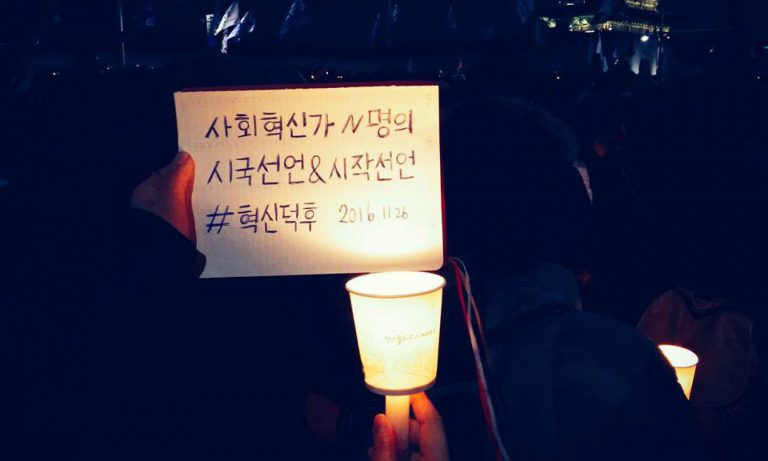 사회혁신가 N명의
시국선언&시작선언
#혁신덕후 2016 11 26